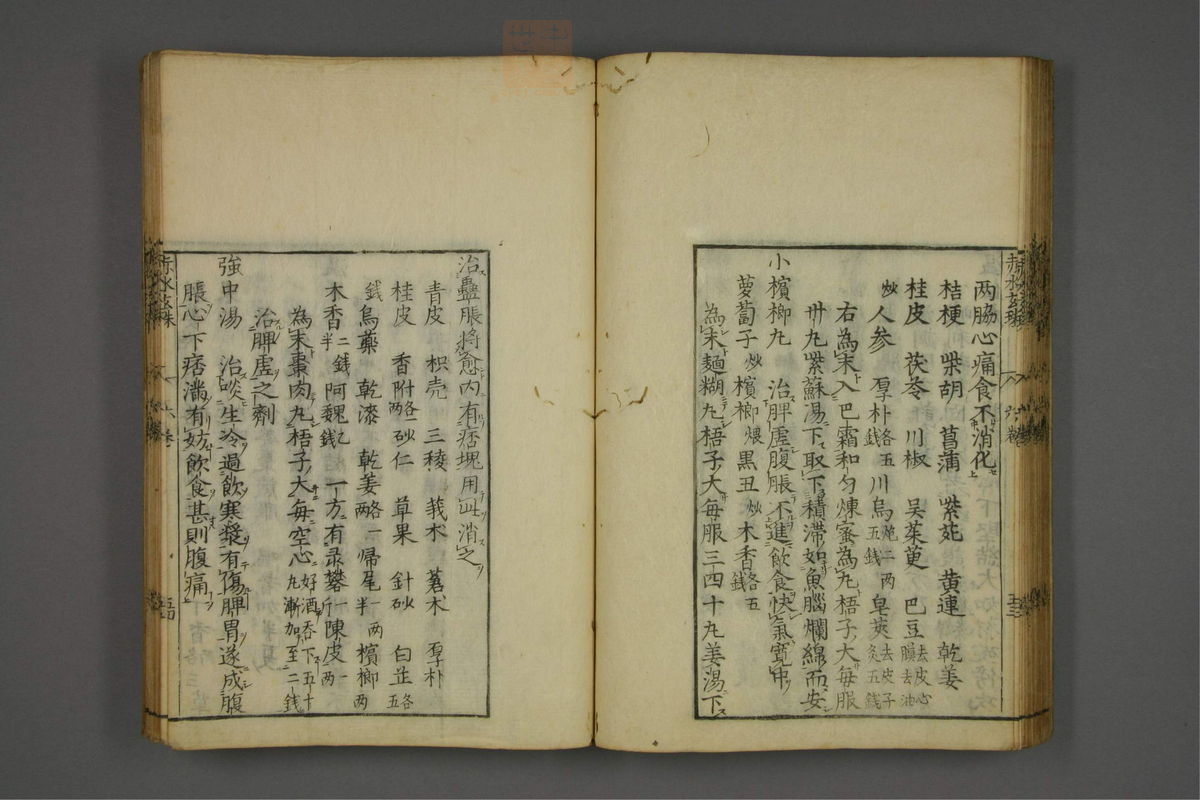 両脇心痛食不消化
桔梗 柴胡 菖蒲 紫苑 黄連 乾姜
桂皮 茯苓 川椒 吳茱萸 巴豆去皮心膜去油
炒人参 厚朴各五錢川烏炮二両五錢皂莢去皮子炙五錢
右為末入巴霜和匀煉蜜為丸梧子大每服
卅丸紫蘇湯下取下積滯如魚腦爛綿而安
小檳榔丸 治脾虛腹脹不進飲食快氣寛中
蘿蔔子炒檳榔煨黒丑炒木香各五錢
為末麺糊丸梧子大每服三四十丸姜湯下
赤水玄珠
六卷
治蠱脹將愈內有痞塊用此消之
青皮 枳売 三稜 莪朮 蒼朮 厚朴
桂皮 香附各一両砂仁 草果 針砂 白芷各五
錢烏藥 乾漆 乾姜各一両帰尾一両半檳榔一両
木香二錢半阿魏錢一方有泶礬一斤陳皮一両
為末棗肉丸梧子大每空心好酒吞下五十丸漸加至二錢
治脾虛之劑
強中湯 治啖生冷過飲寒漿有傷脾胃遂成腹
脹心下痞滿有妨飲食甚則腹痛
赤水玄珠
六卷